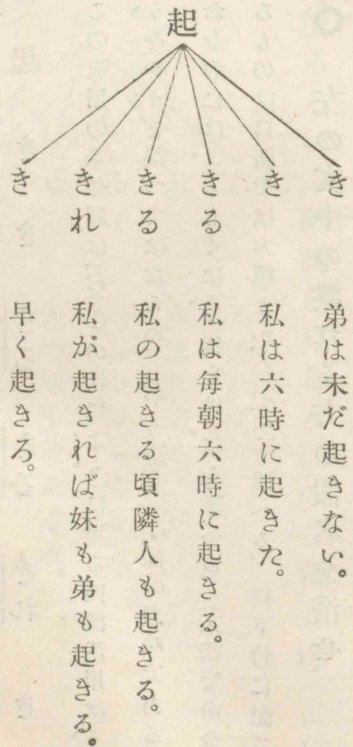 起
き　弟は未だ起きない。
き　私は六時に起きた。
きる　私は毎朝六時に起きる。
きる　私の起きる頃隣人も起きる。
きれ　私が起きれば妹も弟も起きる。
き　早く起きろ。